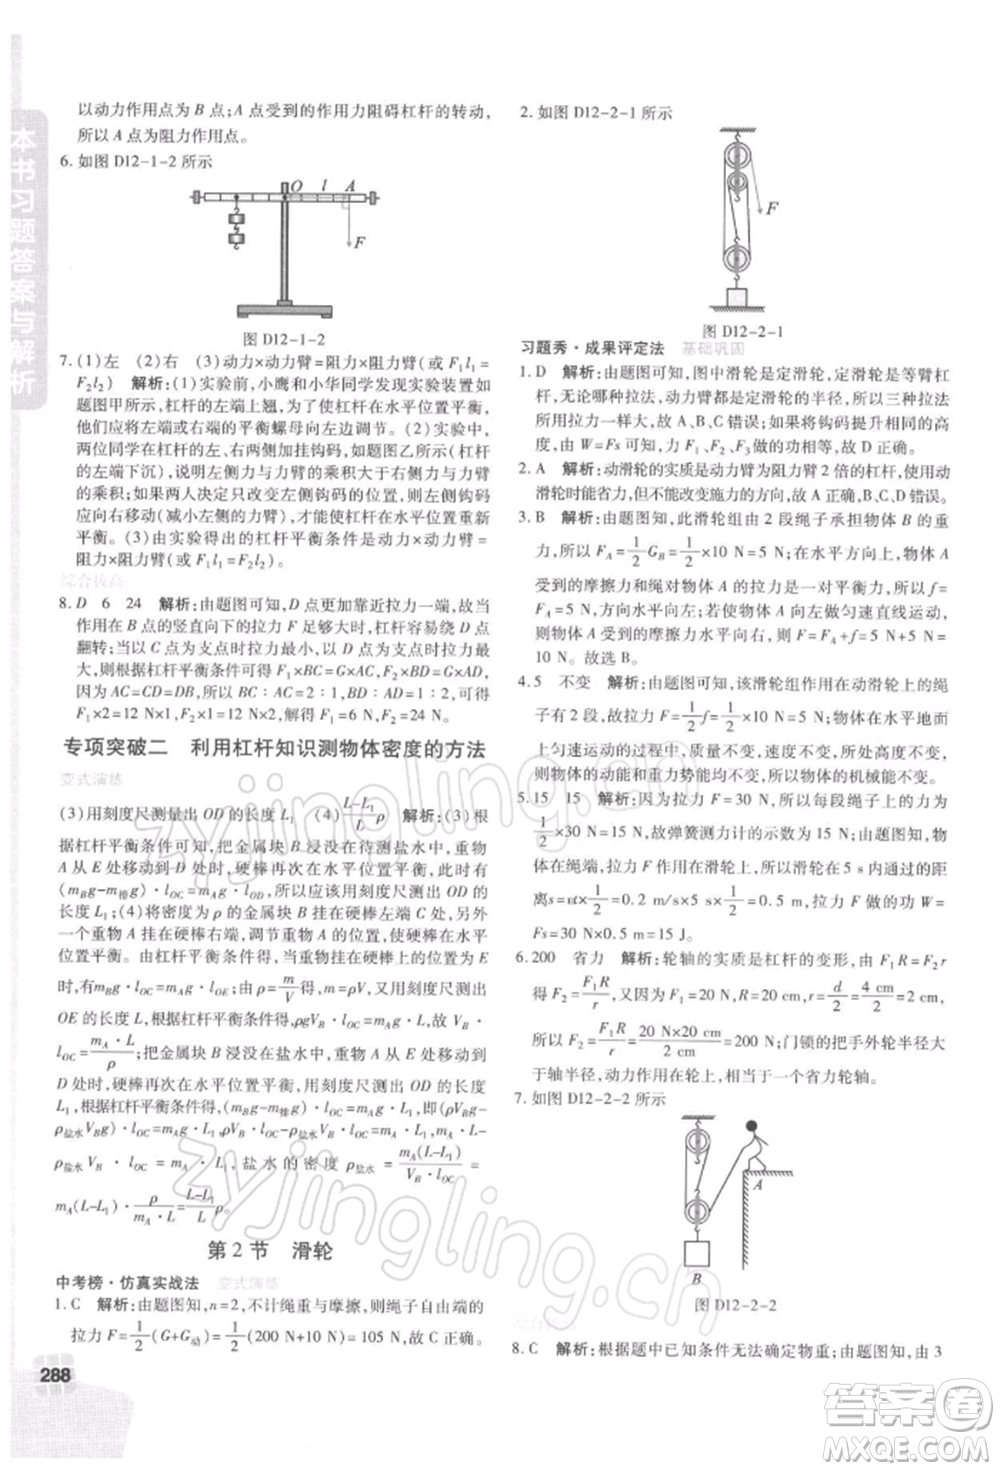 本书习题答案与解析
以动力作用点为 B 点;A 点受到的作用力阻碍杠杆的转动,
所以 A 点为阻力作用点。
6. 如图 D12-1-2 所示
O l A
F
图 D12-1-2
7. (1)左 (2)右 (3)动力×动力臂=阻力×阻力臂(或 F₁l₁=
F₂l₂) 解析:(1)实验前,小鹰和小华同学发现实验装置如
题图甲所示,杠杆的左端上翘,为使杠杆在水平位置平衡,
他们应将左端或右端的平衡螺母向左调。(2)实验中,
在杠杆的左、右两侧加挂钩码后,如题图乙所示(杠杆
的左端下沉),说明左侧力与力臂的乘积大于右侧力与力臂
的乘积;如果两人决定只改变左侧钩码的位置,则左侧钩码
应向右移动(减小左侧的力臂),才能使杠杆在水平位置重新
平衡。(3)由实验得出的杠杆平衡条件是:动力×动力臂=
阻力×阻力臂。
综合拔高
8. D 6 24 解析:由题图可知,D 点更加靠近拉力一端,故若
作用在 B 点的竖直向下的拉力 F 足够大时,杠杆容易绕 D 点
翻转;当以 C 点为支点时拉力最小,以 D 点为支点时拉力最
大,则根据杠杆平衡条件可得 F₁×BC=G×AC,F₂×BD=G×AD,
因为 AC=CD=DB,所以 BC∶AC=2∶1,BD∶AD=1∶2,可得
F₁×2=12 N×1,F₂×1=12 N×2,解得 F₁=6 N,F₂=24 N。
专项突破二 利用杠杆知识测物体密度的方法
变式演练
(3)用刻度尺测量出 OD 的长度 L₁ (4)(L-L₁)/L ρ 解析:(3)根
据杠杆平衡条件可知,把金属块浸没在待测盐水中,重物
A 从 E 处移动到 D 处,硬棒再次在水平位置平衡,此时有
(m_B g-m_排 g)×l_OC=m_A g×l_OD,所以应该用刻度尺测出 OD 的
长度 L₁;(4)将密度为 ρ 的金属块 B 挂在硬棒左端 C 处,另
一个重物 A 挂在硬棒右端,调节重物 A 使硬棒在水平
位置平衡。由杠杆平衡条件可得,此时重物 A 的位置在 E 处,
有 m_B g·l_OC=m_A g·l_OE;由 ρ=m/V 得,m=ρV,又因为用刻度尺测出
OE 的长度 L,根据杠杆平衡条件得,ρgV_B·l_OC=m_A g·L,所以
V_B·l_OC=(m_A·L)/ρ;把金属块 B 浸没在盐水中,重物 A 移动到
D 处时,硬棒再次在水平位置平衡,用刻度尺测出 OD 的长度
L₁,根据杠杆平衡条件得,(m_B g-m_排 g)·l_OC=m_A g·L₁,即(ρV_B-
ρ_盐水 V_B)·l_OC=m_A·L₁,
ρ_盐水 V_B·l_OC=m_A·L-m_A·L₁,盐水的密度 ρ_盐水=m_A(L-L₁)/(V_B·l_OC)=
m_A(L-L₁)×ρ/(m_A·L)=(L-L₁)/L ρ。
第 2 节 滑轮
中考榜·仿真实战法 变式演练
1. C 解析:由题图知,n=2,不计绳重与摩擦,则绳子自由端的
拉力 F=1/2(G+G_动)=1/2(200 N+10 N)=105 N,故 C 正确。
288
2. 如图 D12-2-1 所示
F
图 D12-2-1
习题秀·成果评定法 基础巩固
1. D 解析:由题图可知,图中滑轮是定滑轮,定滑轮是等臂杠
杆,无论哪种拉法,动力臂都是定滑轮的半径,所以三种拉法
所用拉力一样大,故 A、B、C 错误;如果将钩码提升相同的高
度,由 W=Fs 可知,力 F 所做的功相等,故 D 正确。
2. A 解析:动滑轮的实质是动力臂为阻力臂 2 倍的杠杆,使用动
滑轮时能省力,但不能改变施力的方向,故 A 正确,B、C、D 错误。
3. B 解析:由题图知,此滑轮组由 2 段绳子承担物体 B 的重
力,所以 F_A=1/2 G_B=1/2×10 N=5 N;在水平方向上,物体 A
受到的摩擦力和绳对物体 A 的拉力是一对平衡力,所以 f=
F_A=5 N,方向水平向左;若使物体 A 向左做匀速直线运动,
则物体受到的摩擦力水平向右,大小不变,故 F=F_A+f=5 N+5 N=
10 N。故选 B。
4. 5 不变 解析:由题图可知,该滑轮组作用在动滑轮上的绳
子有 2 段,故拉力 F=1/2 f=1/2×10 N=5 N。物体在水平地面
匀速运动的过程中,质量不变、速度不变、高度不变,所以
物体的动能和重力势能均不变,故物体的机械能不变。
5. 15 15 解析:因为拉力 F=30 N,所以弹簧测力计的示数为
1/2×30 N=15 N,故弹簧测力计的示数为 15 N;由题图可知,物
体在绳端,拉力 F 作用在滑轮上,所以滑轮在 5 s 内通过的距
离 s=vt=1/2×0.2 m/s×5 s=0.5 m,所以拉力 F 做的功 W=
Fs=30 N×0.5 m=15 J。
6. 200 省力 解析:轮轴的实质是杠杆的变形,由 F₁R=F₂r
得 F₂=F₁R/r,又因为 F₁=20 N,R=20 cm,r=d/2=4 cm/2=2 cm,
所以 F₂=F₁R/r=(20 N×20 cm)/(2 cm)=200 N;门锁的把手外轮半径
大于轴半径,动力作用在轮上,是一个省力轮轴。
7. 如图 D12-2-2 所示
A
B
图 D12-2-2
综合拔高
8. C 解析:根据题中已知条件无法确定物重;由题图可知,有 3
zyjingling.cn
zyjingling.cn
答案圈
MXQE.COM